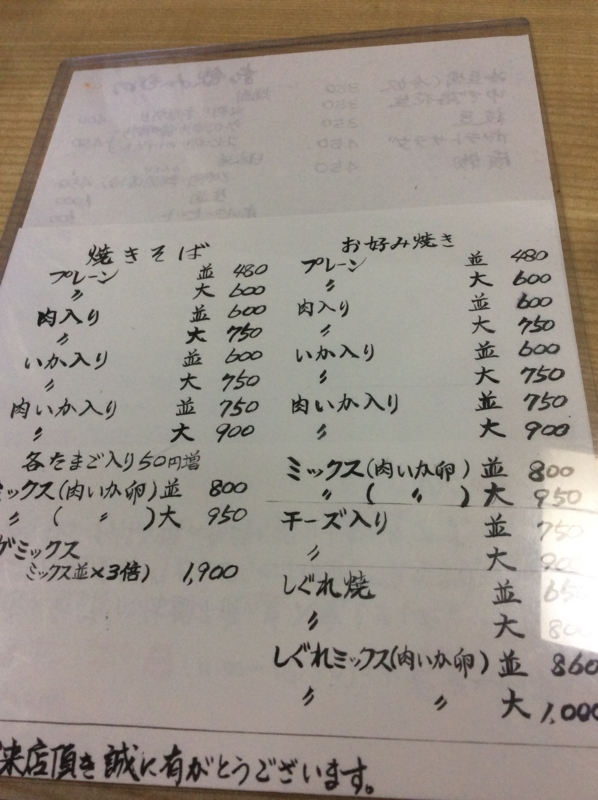 焼きそば
プレーン 並 480
〃 大 600
肉入り 並 600
〃 大 750
いか入り 並 600
〃 大 750
肉いか入り 並 750
〃 大 900
各たまご入り50円増
ミックス(肉いか卵) 並 800
〃 ( 〃 ) 大 950
ミックス
ミックス並×3倍) 1,900
お好み焼き
プレーン 並 480
〃 大 600
肉入り 並 600
〃 大 750
いか入り 並 600
〃 大 750
肉いか入り 並 750
〃 大 900
ミックス(肉いか卵) 並 800
〃 ( 〃 ) 大 950
チーズ入り 並 750
〃 大
しぐれ焼 並 650
〃 大 800
しぐれミックス(肉いか卵) 並 860
〃 〃 大 1,000
来店頂き誠に有がとうございます。